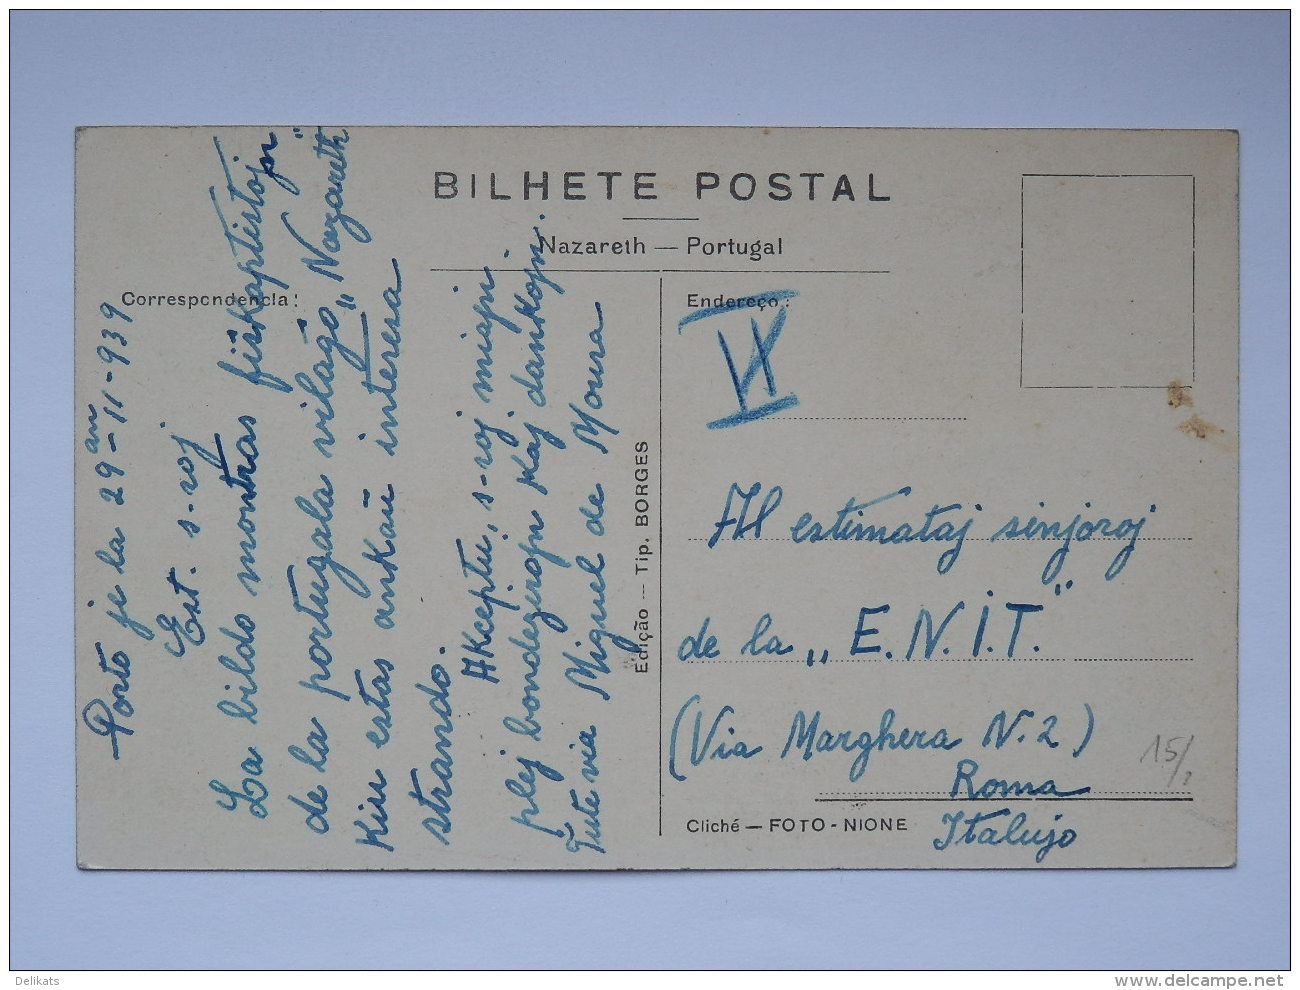 BILHETE POSTAL
Nazareth — Portugal
Correspondencia:
Porto je la 29an-11-939
Est. s-roj
La bildo montras fiŝkaptistojn
de la portugala vilaĝo „Nazareth"
kiu estas ankaŭ interesa
strando.
Akceptu, s-roj miajn
plej bondezirojn kaj dankojn.
Tute via Miguel de Moura
Edição — Tip. BORGES
Endereço:
Al estimataj sinjoroj
de la „E.N.I.T."
(Via Marghera N.2)
Roma
Italujo
Cliché — FOTO-NIONE
15/
Delikats
www.delcampe.net